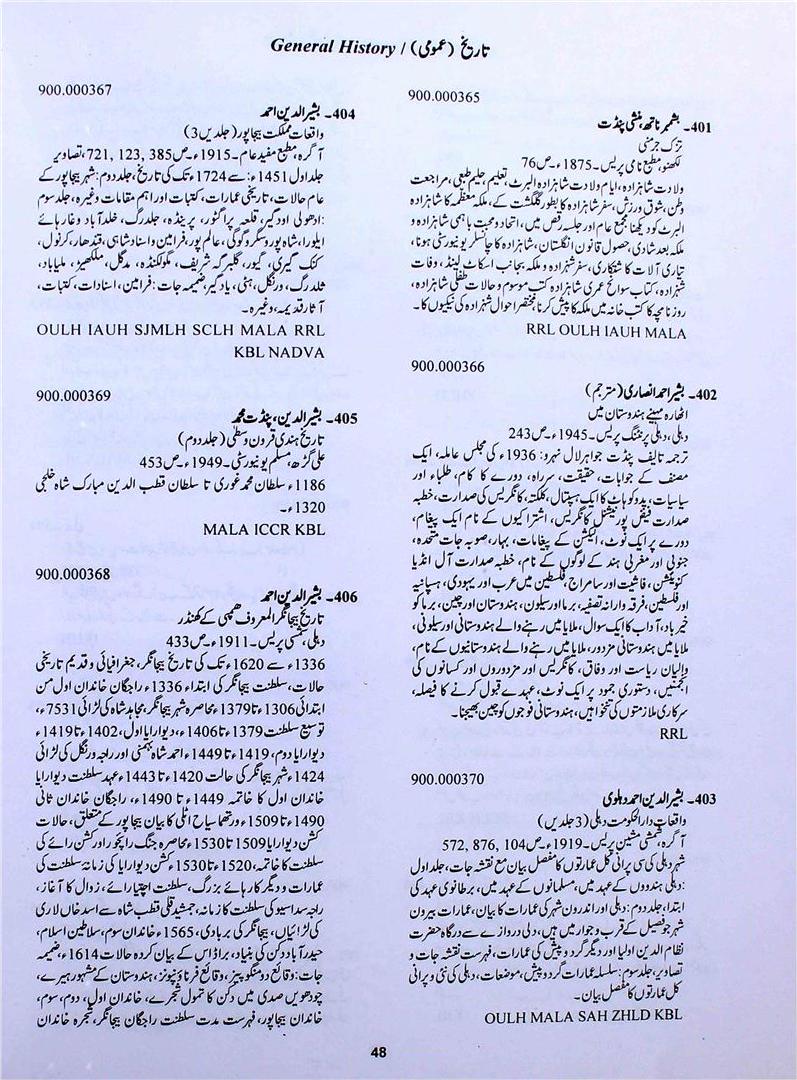 General History / تاریخ (عمومی)
900.000365
401۔ بشمبر ناتھ، منشی پنڈت
تزک جرمنی
لکھنو، مطبع نامی پریس۔ 1875ء۔ ص76
ولادت شاہزادہ، ایام ولادت شاہزادہ البرٹ، تعلیم، حلیم طبعی، مراجعت
وطن، شوق ورزش، سفر شاہزادہ کا بطور گلگشت کے، ملکہ معظمہ کا شاہزادہ
البرٹ کو دیکھنا مجمع عام اور جلسہ رقص میں، اتحاد و محبت باہمی شاہزادہ و
ملکہ بعد شادی، حصول قانون انگلستان، شاہزادہ کا چانسلر یونیورسٹی ہونا،
تیاری آلات کاشتکاری، سفر شہزادہ و ملکہ بجانب اسکاٹ لینڈ، وفات
شہزادہ، کتاب سوانح عمری شاہزادہ کتب موسوم و حالات طفلی شاہزادہ،
روزنامچہ کا کتب خانہ میں ملکہ کا پیش کرنا، مختصر احوال شہزادہ کی نیکیوں کا۔
RRL OULH IAUH MALA
900.000366
402۔ بشیر احمد انصاری (مترجم)
اٹھارہ مہینے ہندوستان میں
دہلی، دہلی پرنٹنگ پریس۔ 1945ء۔ ص243
ترجمہ تالیف پنڈت جواہر لال نہرو: 1936ء کی مجلس عاملہ، ایک
مصنف کے جوابات، حقیقت، سرراہ، دورے کا کام، طلباء اور
سیاسیات، بدوکوہاٹ کا ایک ہسپتال، کلکتہ، کانگریس کی صدارت، خطبہ
صدارت فیض پور نیشنل کانگریس، اشتراکیوں کے نام ایک پیغام،
دورے پر ایک نوٹ، الیکشن کے پیغامات، بہار، صوبہ جات متحدہ،
جنوبی اور مغربی ہند کے لوگوں کے نام، خطبہ صدارت آل انڈیا
کنونشن، فاشیت اور سامراج، فلسطین میں عرب اور یہودی، ہسپانیہ
اور فلسطین، فرقہ وارانہ تصفیہ، برما اور سیلون، ہندوستان اور چین، برما کو
خیرباد، آداب کا ایک سوال، ملایا میں رہنے والے ہندوستانی اور سیلونی،
ملایا میں ہندوستانی مزدور، ملایا میں رہنے والے ہندوستانیوں کے نام،
والیان ریاست اور وفاق، کانگریس اور مزدوروں اور کسانوں کی
انجمنیں، دستوری جمود پر ایک نوٹ، عہدے قبول کرنے کا فیصلہ،
سرکاری ملازمتوں کی تنخواہیں، ہندوستانی فوجوں کو چین بھیجنا۔
RRL
900.000370
403۔ بشیر الدین احمد دہلوی
واقعات دار الحکومت دہلی (3 جلدیں)
آگرہ، شمسی مشین پریس۔ 1919ء۔ ص104 ,876 ,572
شہر دہلی کی سی پرانی کل عمارتوں کا مفصل بیان مع نقشہ جات، جلد اول
: دہلی ہندوؤں کے عہد میں، مسلمانوں کے عہد میں، برطانوی عہد کی
ابتدا، جلد دوم: دہلی اور اندرون شہر کی عمارات کا بیان، عمارات بیرون
شہر جو فصیل کے قرب و جوار میں ہیں، دلی دروازے سے درگاہ حضرت
نظام الدین اولیا اور دیگر گرد و پیش کی عمارات، فہرست نقشہ جات و
تصاویر، جلد سوم: سلسلہ عمارات گرد و پیش، موضعات، دہلی کی نئی و پرانی
کل عمارتوں کا مفصل بیان۔
OULH MALA SAH ZHLD KBL
900.000367
404۔ بشیر الدین احمد
واقعات مملکت بیجاپور (جلدیں 3)
آگرہ، مطبع مفید عام۔ 1915ء۔ ص385 ,123 ,721، تصاویر
جلد اول 1451ء: سے 1724ء تک کی تاریخ، جلد دوم: شہر بیجاپور کے
عام حالات، تاریخی عمارات، کتبات اور اہم مقامات وغیرہ، جلد سوم
: ادھولی اودگیر، قلعہ پراگٹور، پرینڈہ، جلدرگ، خلدآباد و غارہائے
ایلورا، شاہ پور و سگر و گوگی، عالم پور، فرامین و اسناد شاہی، قندھار، کرنول،
کنک گیری، گبور، گلبرگہ شریف، گولکنڈہ، مدگل، ملکھیڑ، ملیاباد،
نلدرگ، ورنگل، ہٹی، یادگیر، ضمیمہ جات: فرامین، اسنادات، کتبات،
آثار قدیمہ، وغیرہ۔
OULH IAUH SJMLH SCLH MALA RRL
KBL NADVA
900.000369
405۔ بشیر الدین، پنڈت محمد
تاریخ ہندی قرون وسطیٰ (جلد دوم)
علی گڑھ، مسلم یونیورسٹی۔ 1949ء۔ ص453
1186ء سلطان محمد غوری تا سلطان قطب الدین مبارک شاہ خلجی
1320ء۔
MALA ICCR KBL
900.000368
406۔ بشیر الدین احمد
تاریخ بیجانگر المعروف ہمپی کے کھنڈر
دہلی، شمسی پریس۔ 1911ء۔ ص433
1336ء سے 1620ء تک کی تاریخ بیجانگر، جغرافیائی و قدیم تاریخی
حالات، سلطنت بیجانگر کی ابتداء 1336ء راجگان خاندان اول من
ابتدائی 1306ء تا 1379ء محاصرہ شہر بیجانگر، مجاہد شاہ کی لڑائی 7531ء،
توسیع سلطنت 1379ء تا 1406ء، دیوارایا اول، 1402ء تا 1419ء
دیوارایا دوم، 1419ء تا 1449ء احمد شاہ بہمنی اور راجہ ورنگل کی لڑائی
1424ء شہر بیجانگر کی حالت 1420ء تا 1443ء عہد سلطنت دیوارایا
خاندان اول کا خاتمہ 1449ء تا 1490ء، راجگان خاندان ثانی
1490ء تا 1509ء ورتھما سیاح اٹلی کا بیان بیجاپور کے متعلق، حالات
کشن دیوارایا 1509 تا 1530ء محاصرہ جنگ رائچور اور کشن رائے کی
سلطنت کا خاتمہ، 1520ء تا 1530ء کشن دیوارایا کی زمانہ سلطنت کی
عمارات و دیگر کارہائے بزرگ، سلطنت اچیتارائے، زوال کا آغاز،
راجہ سداسیو کی سلطنت کا زمانہ، جمشید قلی قطب شاہ سے اسد خاں لاری
کی لڑائیاں، بیجانگر کی بربادی، 1565ء خاندان سوم، سلاطین اسلام،
حیدرآباد دکن کی بنیاد، براڈاس کے بیان کردہ حالات 1614ء، ضمیمہ
جات: وقائع دومنگو پیز، وقائع فرناؤنیونز، ہندوستان کے مشہور ہیرے،
چودھویں صدی میں دکن کا تمول شجرے، خاندان اول، دوم، سوم،
خاندان بیجاپور، فہرست مدت سلطنت راجگان بیجانگر، شجرہ خاندان
48